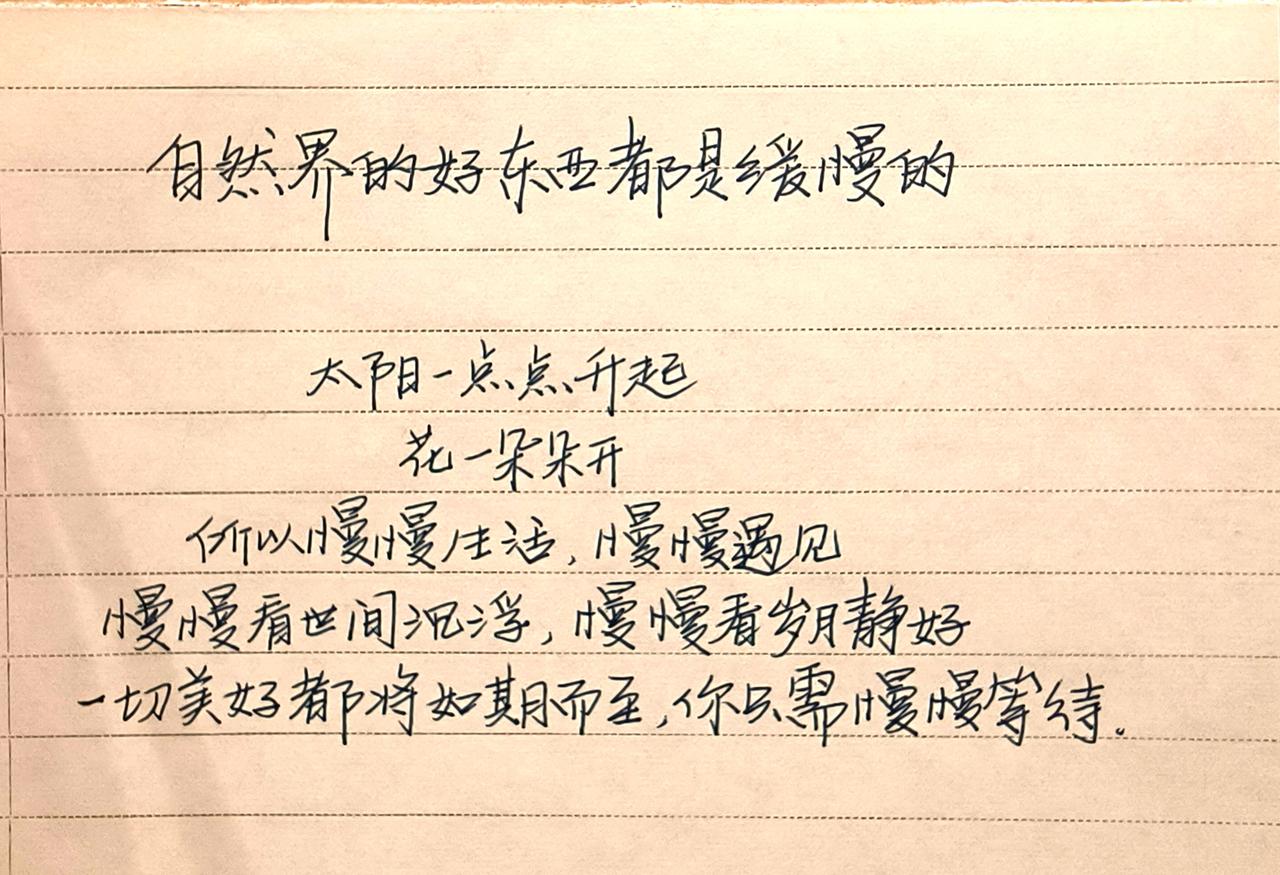 自然界的好东西都是缓慢的
太阳一点点升起
花一朵朵开
所以慢慢生活，慢慢遇见
慢慢看世间沉浮，慢慢看岁月静好
一切美好都将如期而至，你只需慢慢等待。